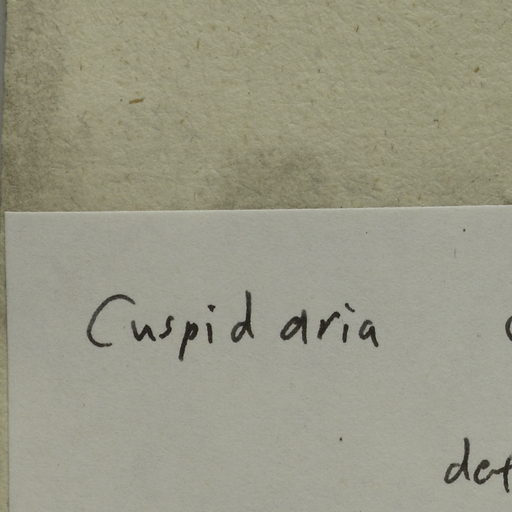 Cuspidaria
det